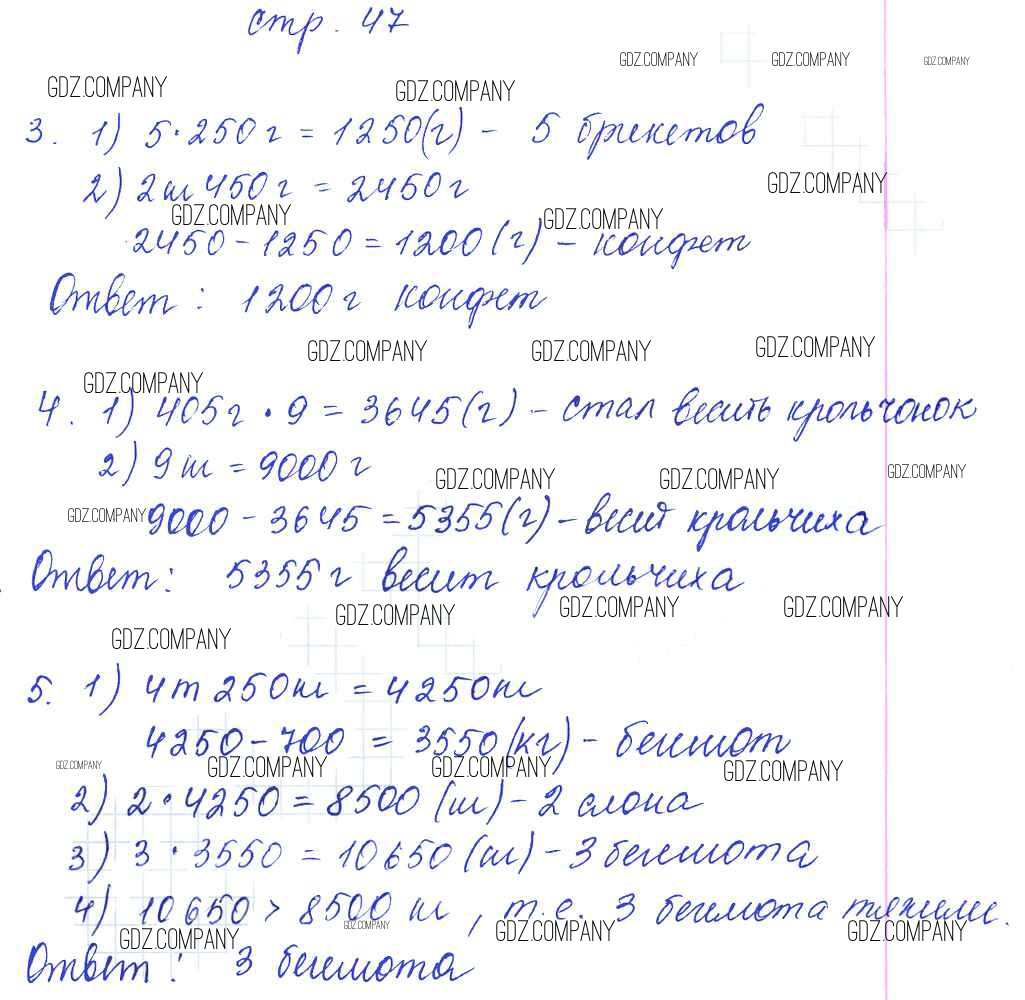 стр. 47
GDZ.COMPANY GDZ.COMPANY GDZ.COMPANY
GDZ.COMPANY GDZ.COMPANY
3. 1) 5·250 г = 1250(г) - 5 брикетов
2) 2 кг 450 г = 2450 г
GDZ.COMPANY
GDZ.COMPANY GDZ.COMPANY
2450 - 1250 = 1200 (г) - конфет
Ответ: 1200 г конфет
GDZ.COMPANY GDZ.COMPANY GDZ.COMPANY
GDZ.COMPANY
4. 1) 405 г · 9 = 3645 (г) - стал весить крольчонок
2) 9 кг = 9000 г
GDZ.COMPANY GDZ.COMPANY GDZ.COMPANY
GDZ.COMPANY
9000 - 3645 = 5355 (г) - весит крольчиха
Ответ: 5355 г весит крольчиха
GDZ.COMPANY GDZ.COMPANY GDZ.COMPANY
GDZ.COMPANY
5. 1) 4 т 250 кг = 4250 кг
4250 - 700 = 3550 (кг) - бегемот
GDZ.COMPANY GDZ.COMPANY GDZ.COMPANY GDZ.COMPANY
2) 2 · 4250 = 8500 (кг) - 2 слона
3) 3 · 3550 = 10650 (кг) - 3 бегемота
4) 10650 > 8500 кг, т.е. 3 бегемота тяжелее.
GDZ.COMPANY GDZ.COMPANY GDZ.COMPANY GDZ.COMPANY
Ответ: 3 бегемота